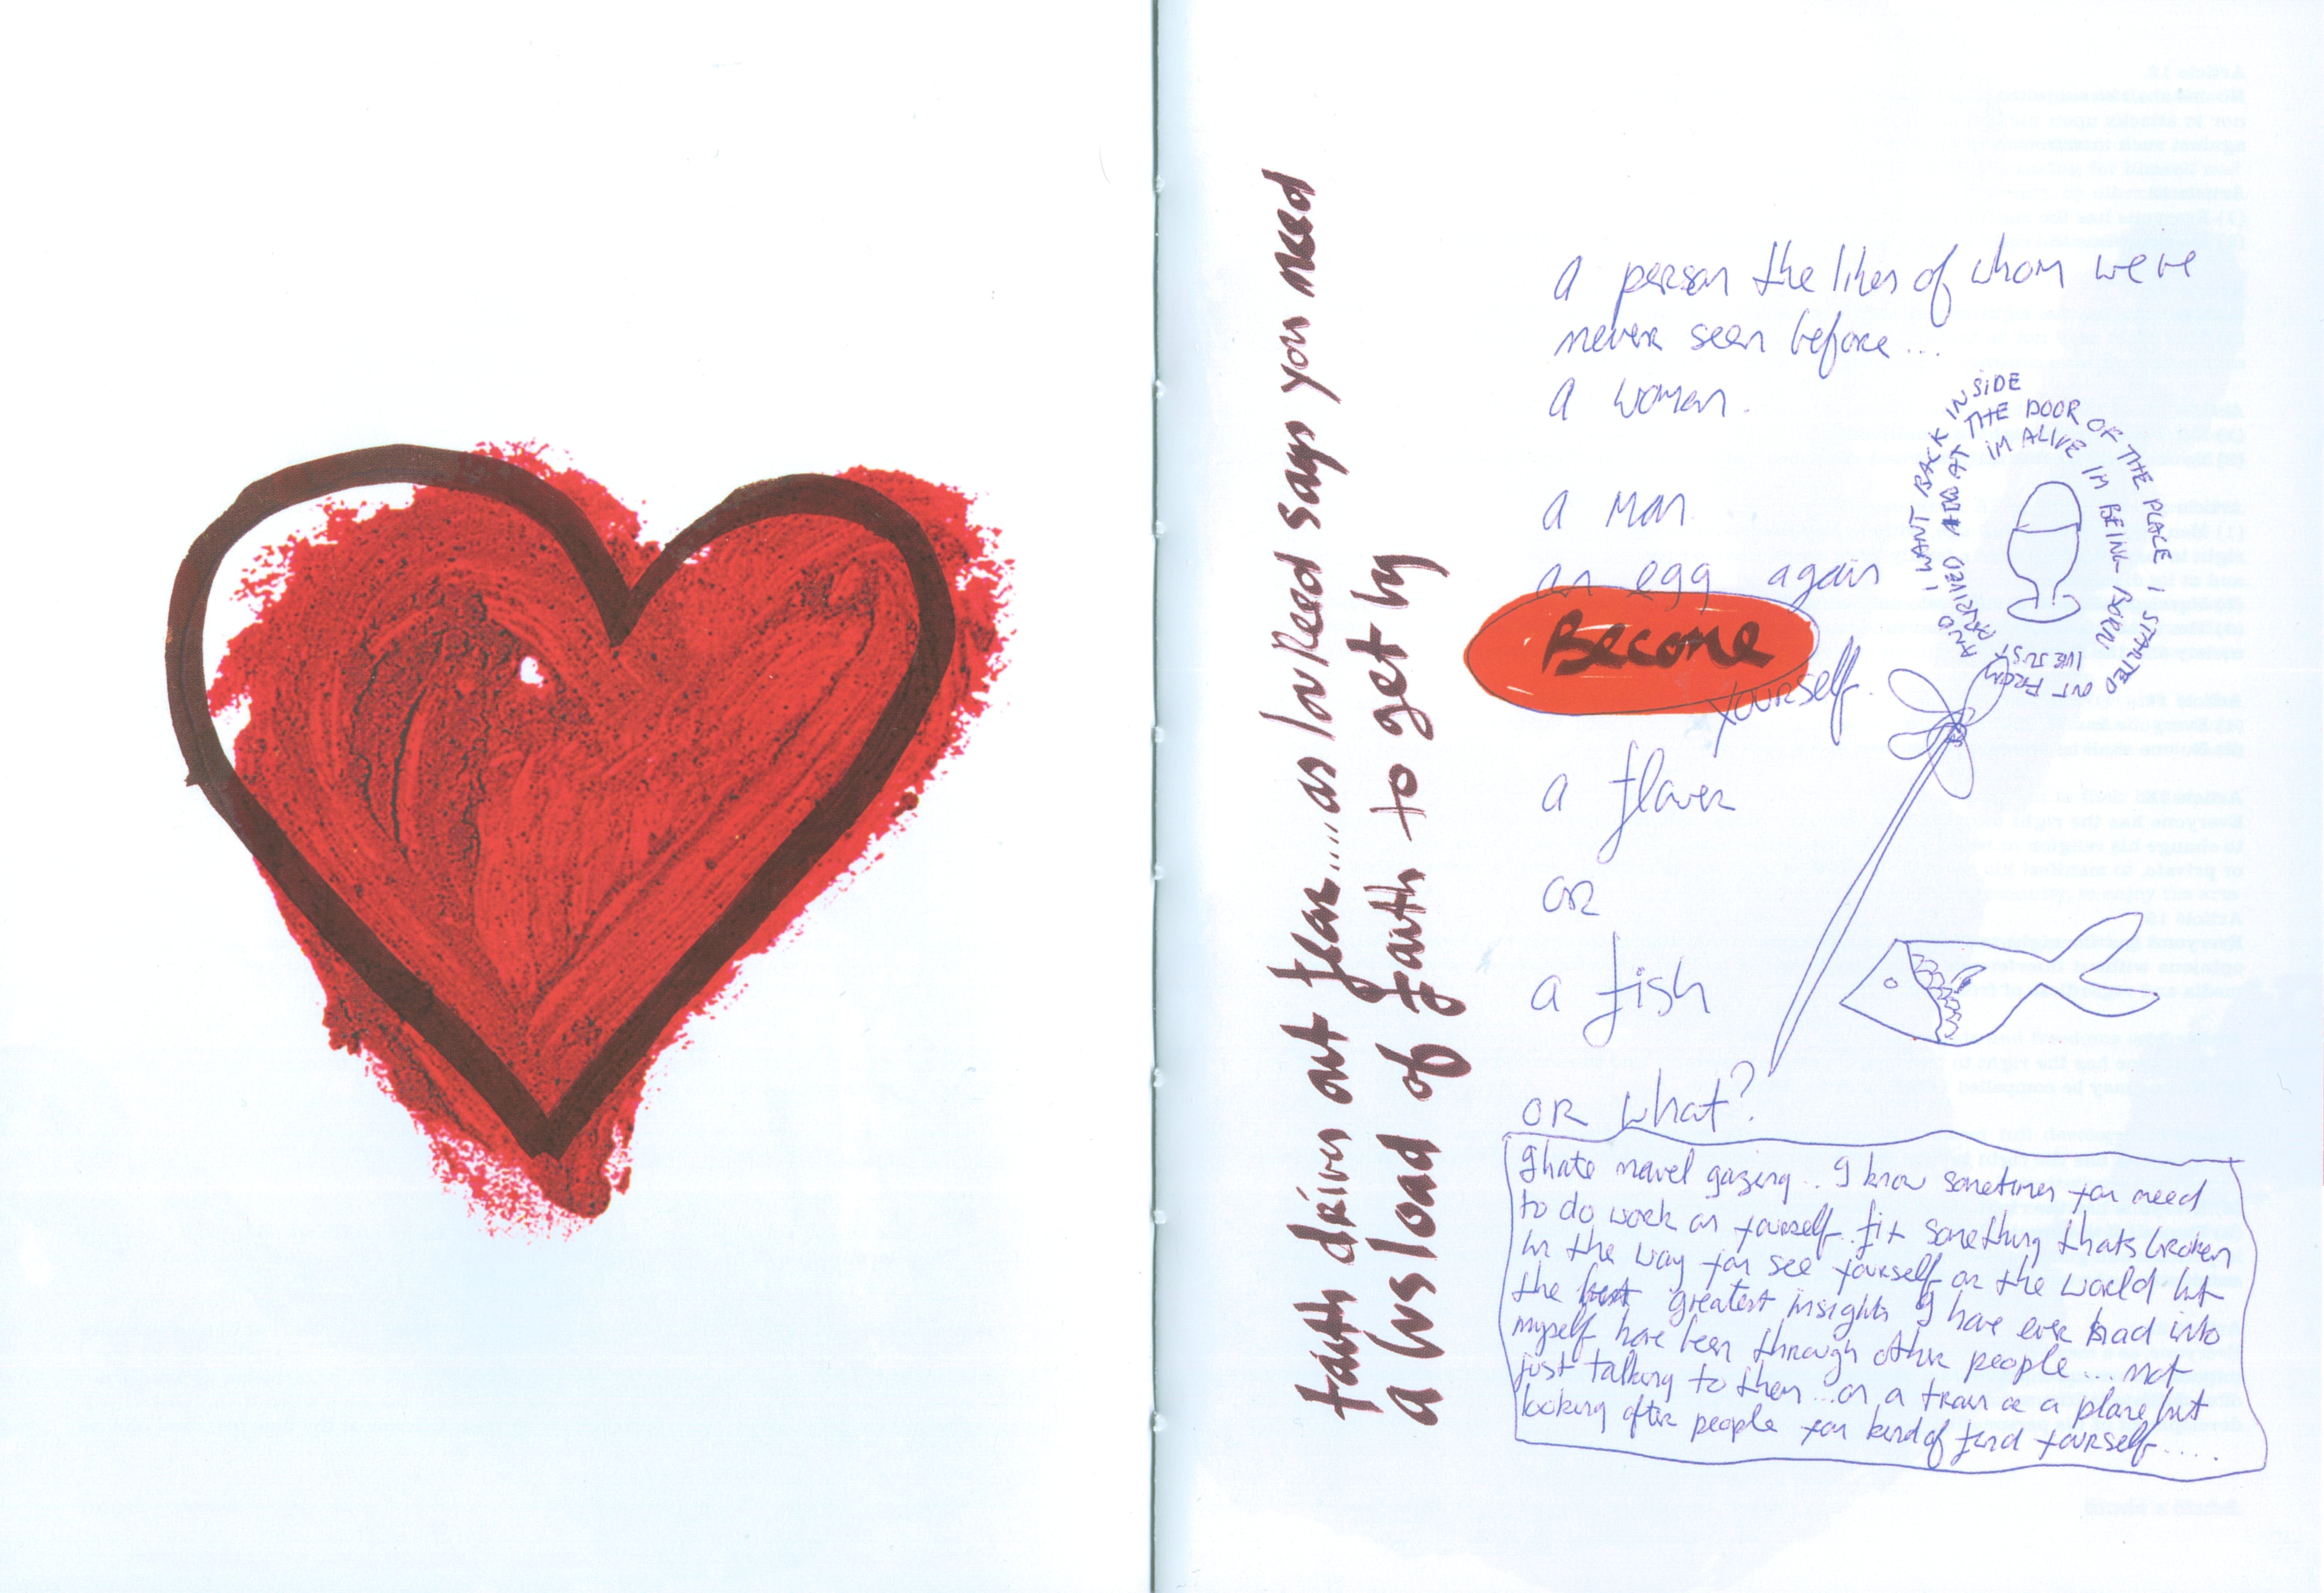 faith drives out fear.....as louReed says you need
a busload of faith to get by
a person the likes of whom were
never seen before...
a woman.
a man
an egg again
Become
yourself.
a flower
or
a fish
or what?
IM ALIVE IM BEING BORN IVE JUST ARRIVED AND AT THE DOOR OF THE PLACE I STARTED OUT FROM AND I WANT BACK INSIDE
I hate navel gazing... I know sometimes you need
to do work on yourself.. fix something thats broken
in the way you see yourself or the world but
the greatest insights I have ever had into
myself have been through other people.... not
just talking to them...on a train or a plane but
looking after people you kind of find yourself.....